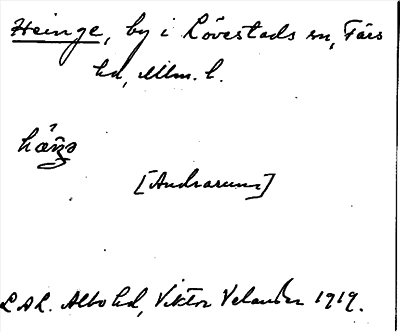 Heinge, by i Lövestads sn, Färs
hd, Mlm. l.
[Andrarum]
LAL. Albo hd, Viktor Velander 1919.